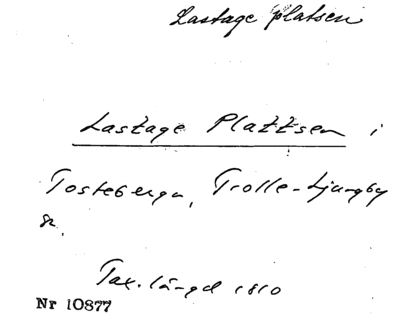 Lastage platsen
Lastage Plattsen i
Tosteberga, Trolle-Ljungby
sn.
Tax.längd 1810
Nr 10877